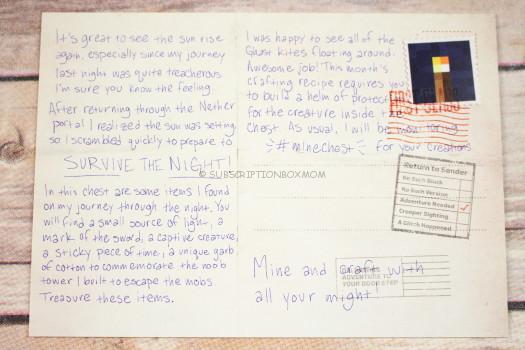 It's great to see the sun rise
again, especially since my journey
last night was quite treacherous.
I'm sure you know the feeling
After returning through the Nether
portal I realized the sun was setting,
so I scrambled quickly to prepare to
SURVIVE THE NIGHT!
In this chest are some items I found
on my journey through the night. You
will find a small source of light, a
mark of the sword, a captive creature,
a sticky piece of time, a unique garb
of cotton to commemorate the noob
tower I built to escape the mobs.
Treasure these items.
I was happy to see all of the
Ghast Kites floating around.
Awesome job! This month's
crafting recipe requires you
to build a helm of protection
for the creature inside the
chest. As usual, I will be monitoring
#minechest for your creations
Mine and craft with
all your might!
Return to Sender
No Such Block
No Such Version
Adventure Needed
Creeper Sighting
A Glitch Happened
ADVENTURE TO
YOUR DOOR STEP
© SUBSCRIPTIONBOXMOM